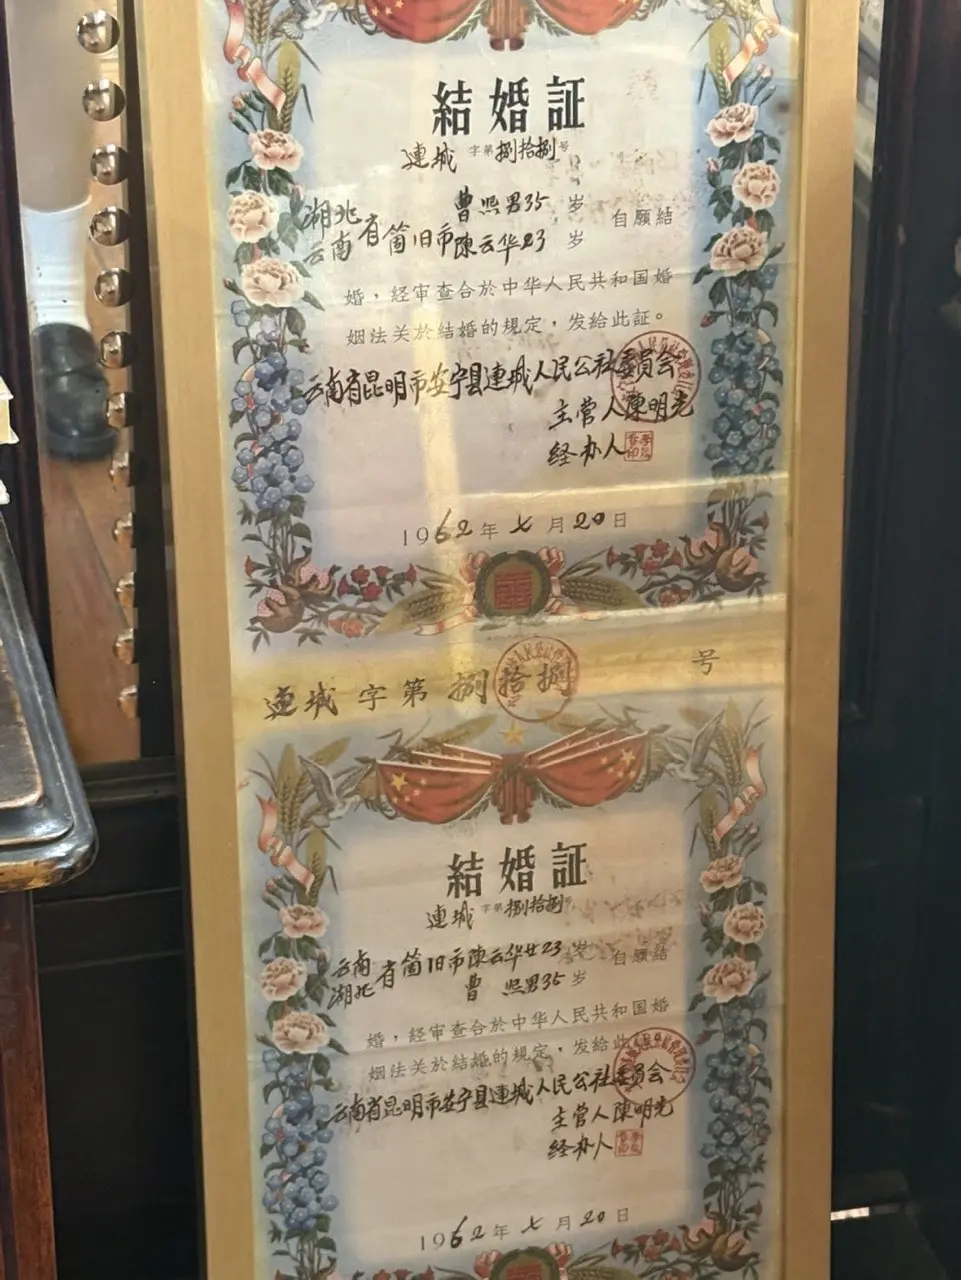 結婚証
連城 字第捌拾捌号
湖北 曹煦男35岁
云南省箇旧市陳云华23岁 自願結
婚，経审查合於中华人民共和国婚
姻法关於結婚的規定，发給此証。
云南省昆明市安宁县連城人民公社委員会
主管人陳明光
经办人
1962年七月20日
連城字第捌拾捌号
結婚証
連城 字第捌拾捌号
云南省箇旧市陳云华女23岁 自願結
湖北 曹煦男35岁
婚，経审查合於中华人民共和国婚
姻法关於結婚的規定，发給此証
云南省昆明市安宁县連城人民公社委員会
主管人陳明光
经办人
1962年七月20日